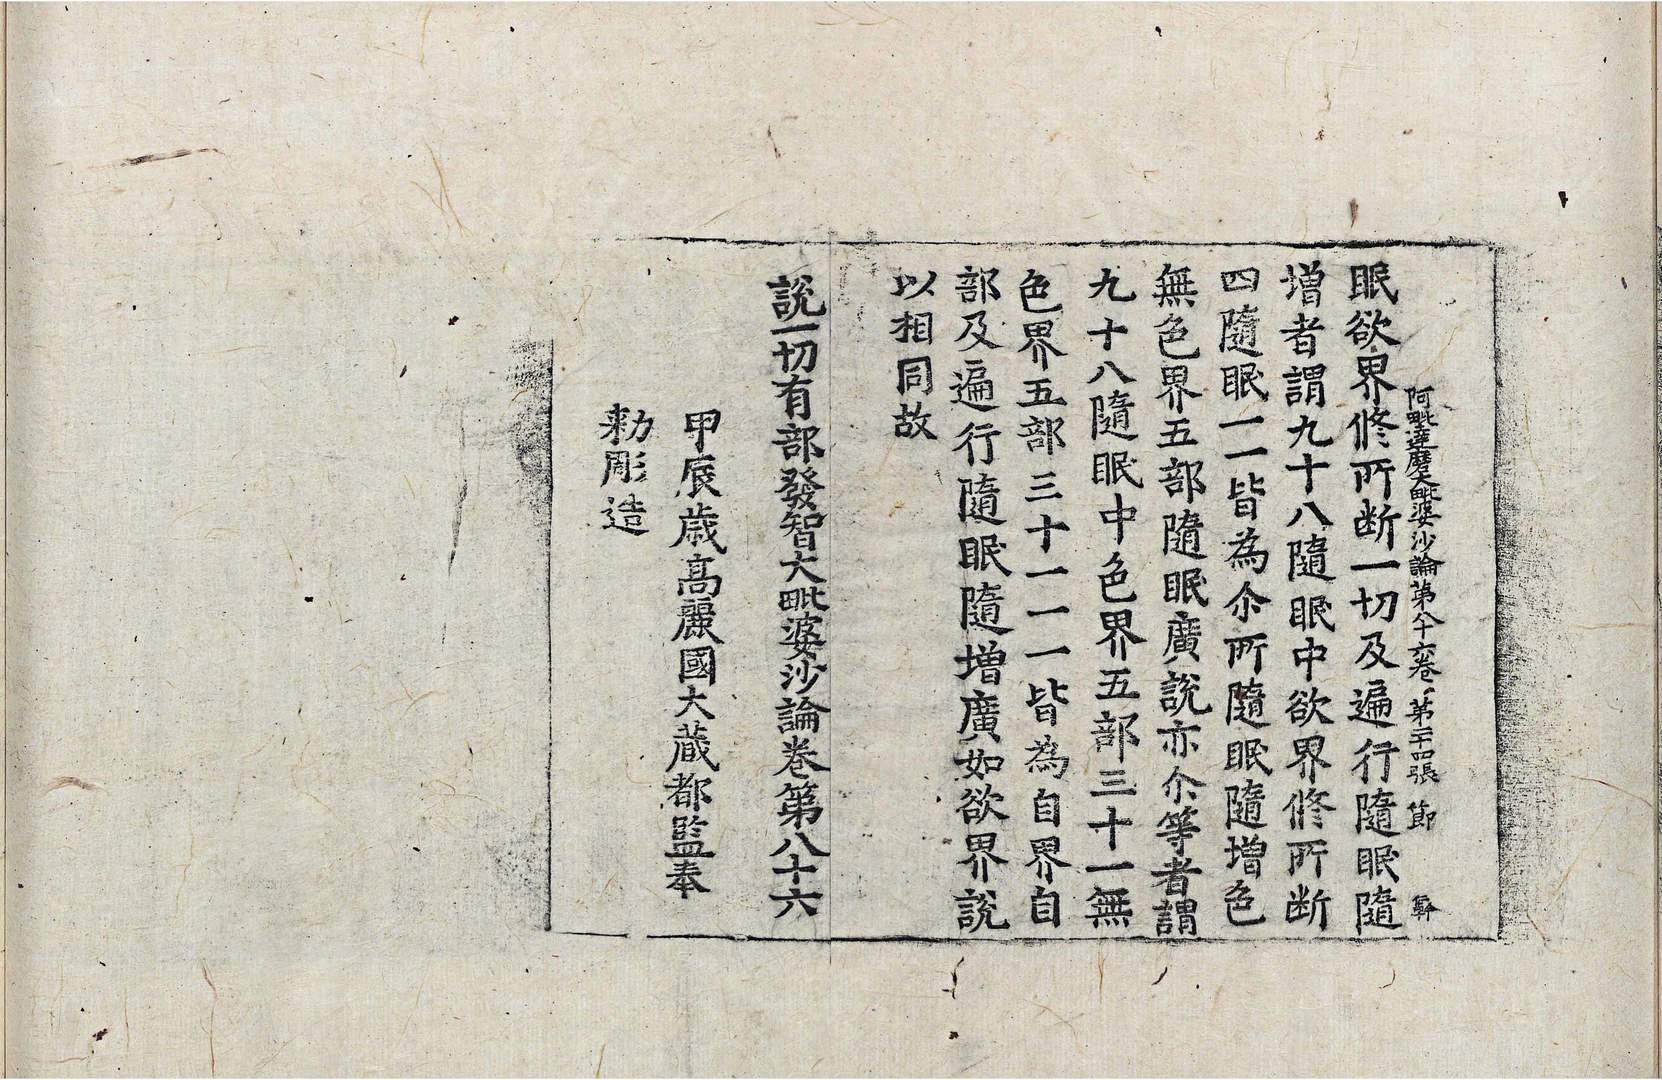 阿毗達磨大毗婆沙論第八十六卷 第二十四張 節
眠欲界修所断一切及遍行隨眠隨
增者謂九十八隨眠中欲界修所断
四隨眠一一皆為尒所隨眠隨增色
無色界五部隨眠廣說亦尒等者謂
九十八隨眠中色界五部三十一無
色界五部三十一一一皆為自界自
部及遍行隨眠隨增廣如欲界說
以相同故
說一切有部發智大毗婆沙論卷第八十六
甲辰歲高麗國大藏都監奉
勑彫造